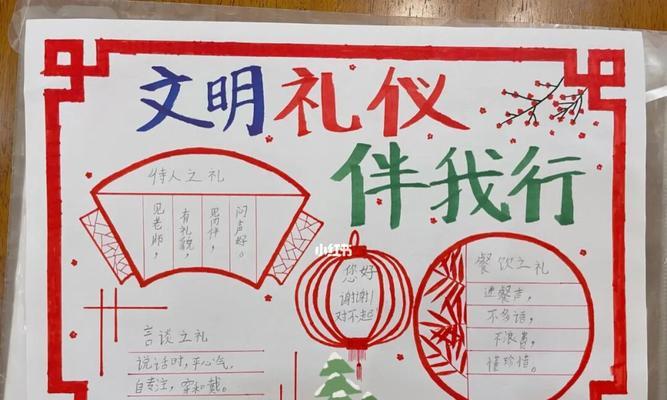 文明礼仪
伴我行
待人之礼
见老师，
有礼貌，
见同伴，
问声好。
小红书
您好
谢谢！
对不起
餐饮之礼
进餐声，
不多话，
不浪费，
懂珍惜。
言谈之礼
说话时，平心气，
自专注，